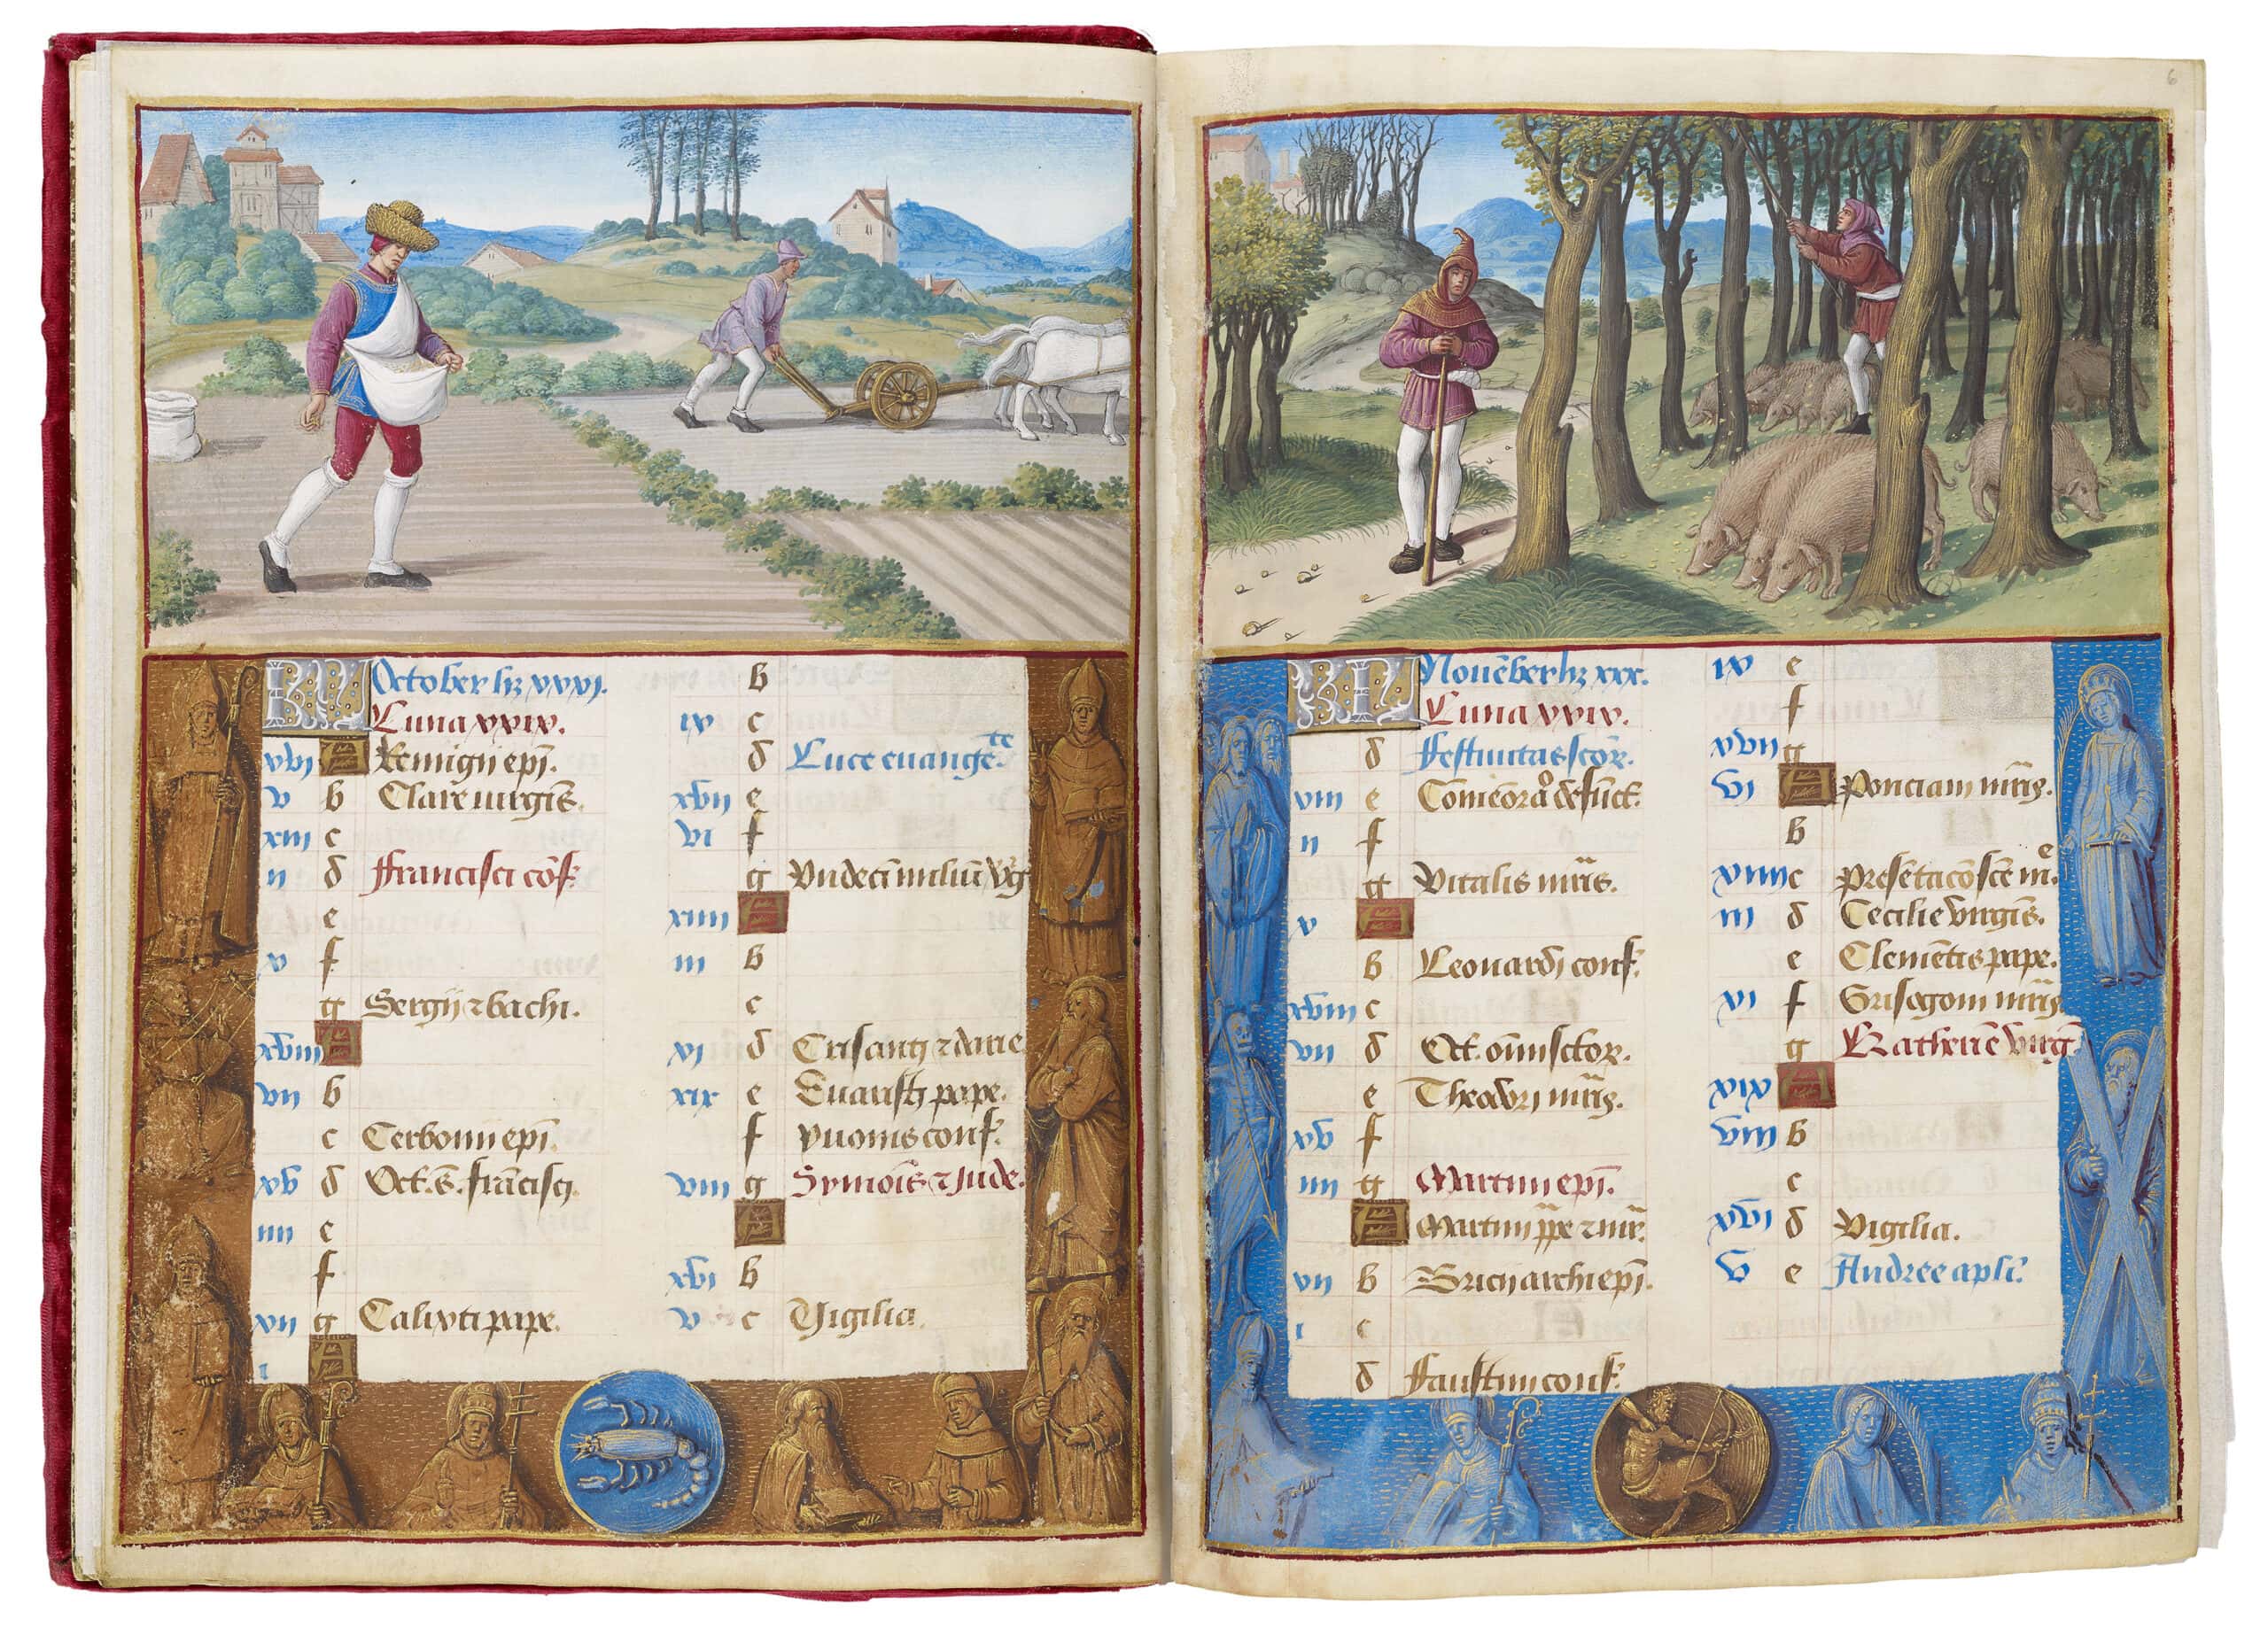 6
KL October hz xxxi.
Luna xxix.
xvi A Remigii epi.
v b Clare virginis.
xiii c
ii d Francisci cof.
e
x f
g Sergii ⁊ bachi.
xviii A
vii b
c Cerbonii epi.
xv d Oct. S. francisci
iiii e
f
xii g Calixti pape.
i A
b
ix c
d Luce evangete
xvii e
vi f
g Undeci miliu virg
xiiii A
iii b
c
xi d Crisanti ⁊ darie
xix e Evaristi pape.
f yvonis conf.
viii g Symois ⁊ Jude.
A
xvi b
v c Vigilia.
KL Novēber hz xxx.
Luna xxix.
d Festivitas scōr.
xiii e Comēora defūct.
ii f
g Vitalis mris.
x A
b Leonardi conf.
xviii c
vii d Oct. omi sctor.
e Theodori mris.
xv f
iiii g Martini epi.
A Martini ppe ⁊ mr.
xii b Bricii archiepi.
i c
d Faustini conf.
ix e
f
xvii g
vi A Ponciani mris.
b
xiiii c Presētacō sce me.
iii d Cecilie virgis.
e Clemētis pape.
xi f Grisogoni mris
g Katherie virg
xix A
viii b
c
xvi d Vigilia.
v e Andree apli.